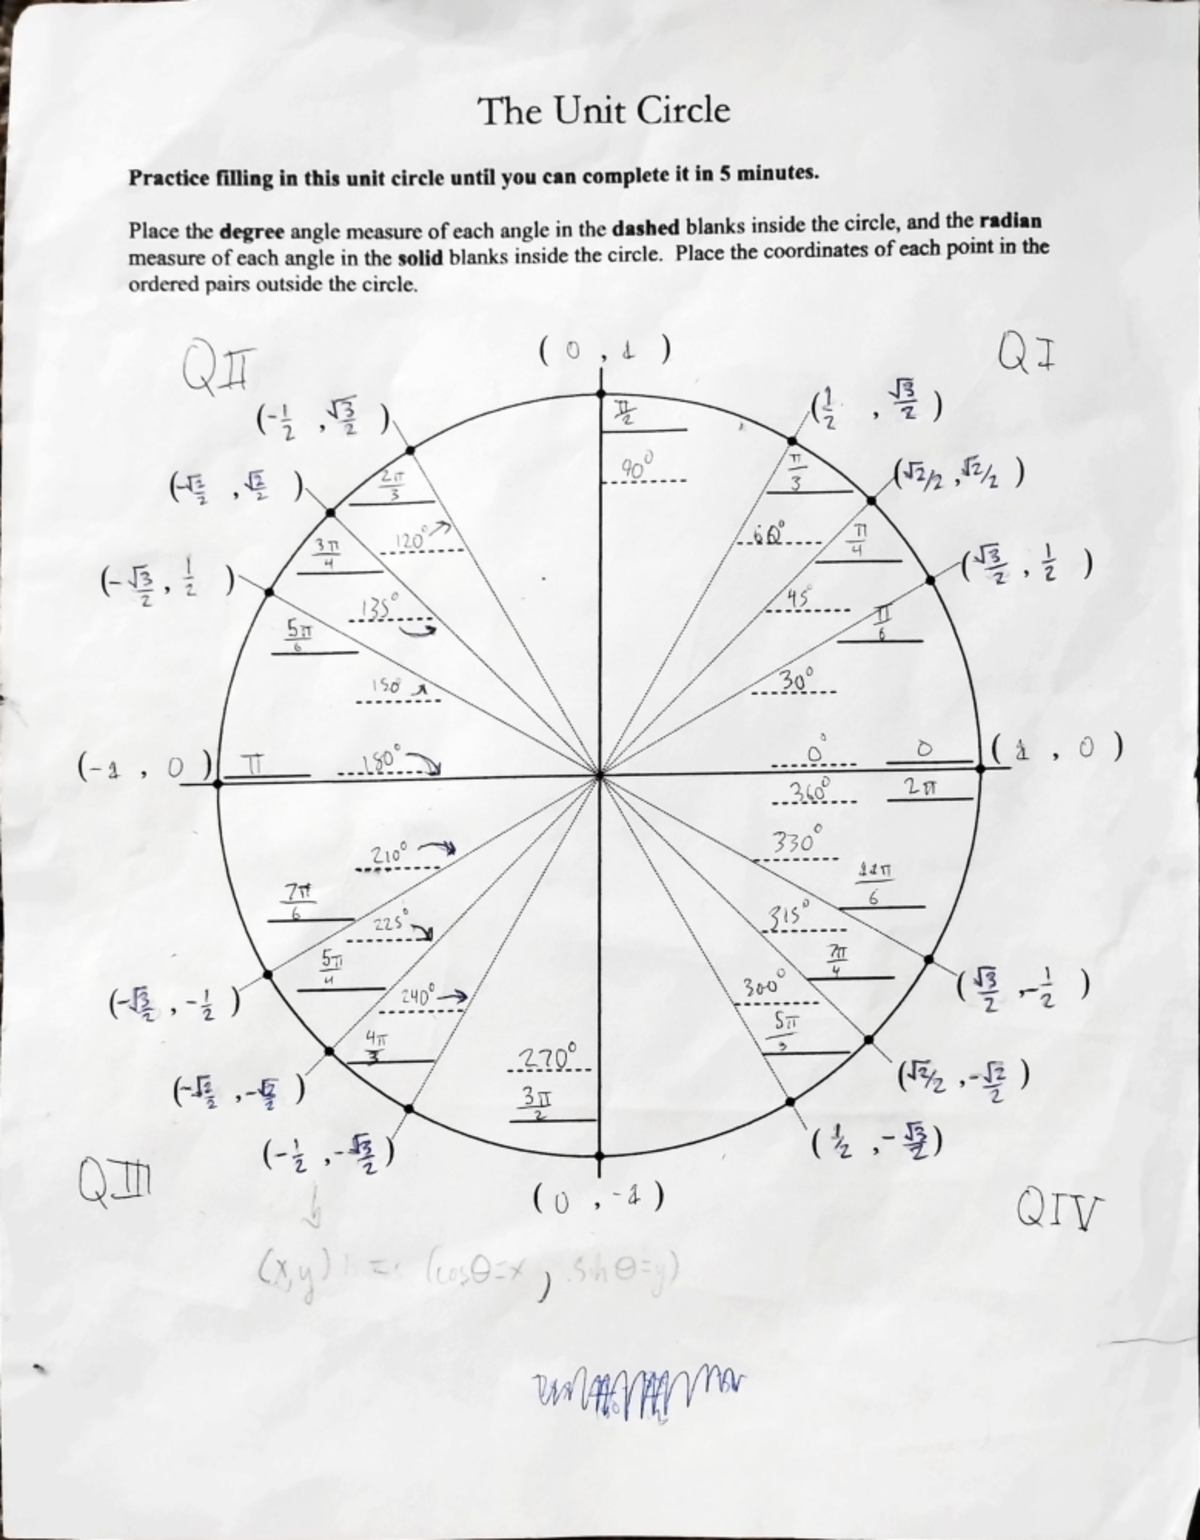 The Unit Circle
Practice filling in this unit circle until you can complete it in 5 minutes.
Place the degree angle measure of each angle in the dashed blanks inside the circle, and the radian
measure of each angle in the solid blanks inside the circle. Place the coordinates of each point in the
ordered pairs outside the circle.
QII
( 0 , 1 )
QI
(-1/2 , √3/2 )
(1/2 , √3/2 )
π/2
90°
(-√2/2 , √2/2 )
2π/3
π/3
(√2/2 , √2/2 )
120°
60°
3π/4
π/4
(-√3/2 , 1/2 )
(√3/2 , 1/2 )
135°
45°
5π/6
π/6
150
30°
(-1 , 0 )
π
180°
0°
0
( 1 , 0 )
360°
2π
210°
330°
7π/6
11π/6
225°
315°
5π/4
7π/4
(-√3/2 , -1/2 )
(√3/2 , -1/2 )
240°
300°
4π/3
5π/3
270°
3π/2
(-√2/2 , -√2/2 )
(√2/2 , -√2/2 )
(-1/2 , -√3/2 )
(1/2 , -√3/2 )
QIII
( 0 , -1 )
QIV
(x,y) = (cosθ=x , sinθ=y)